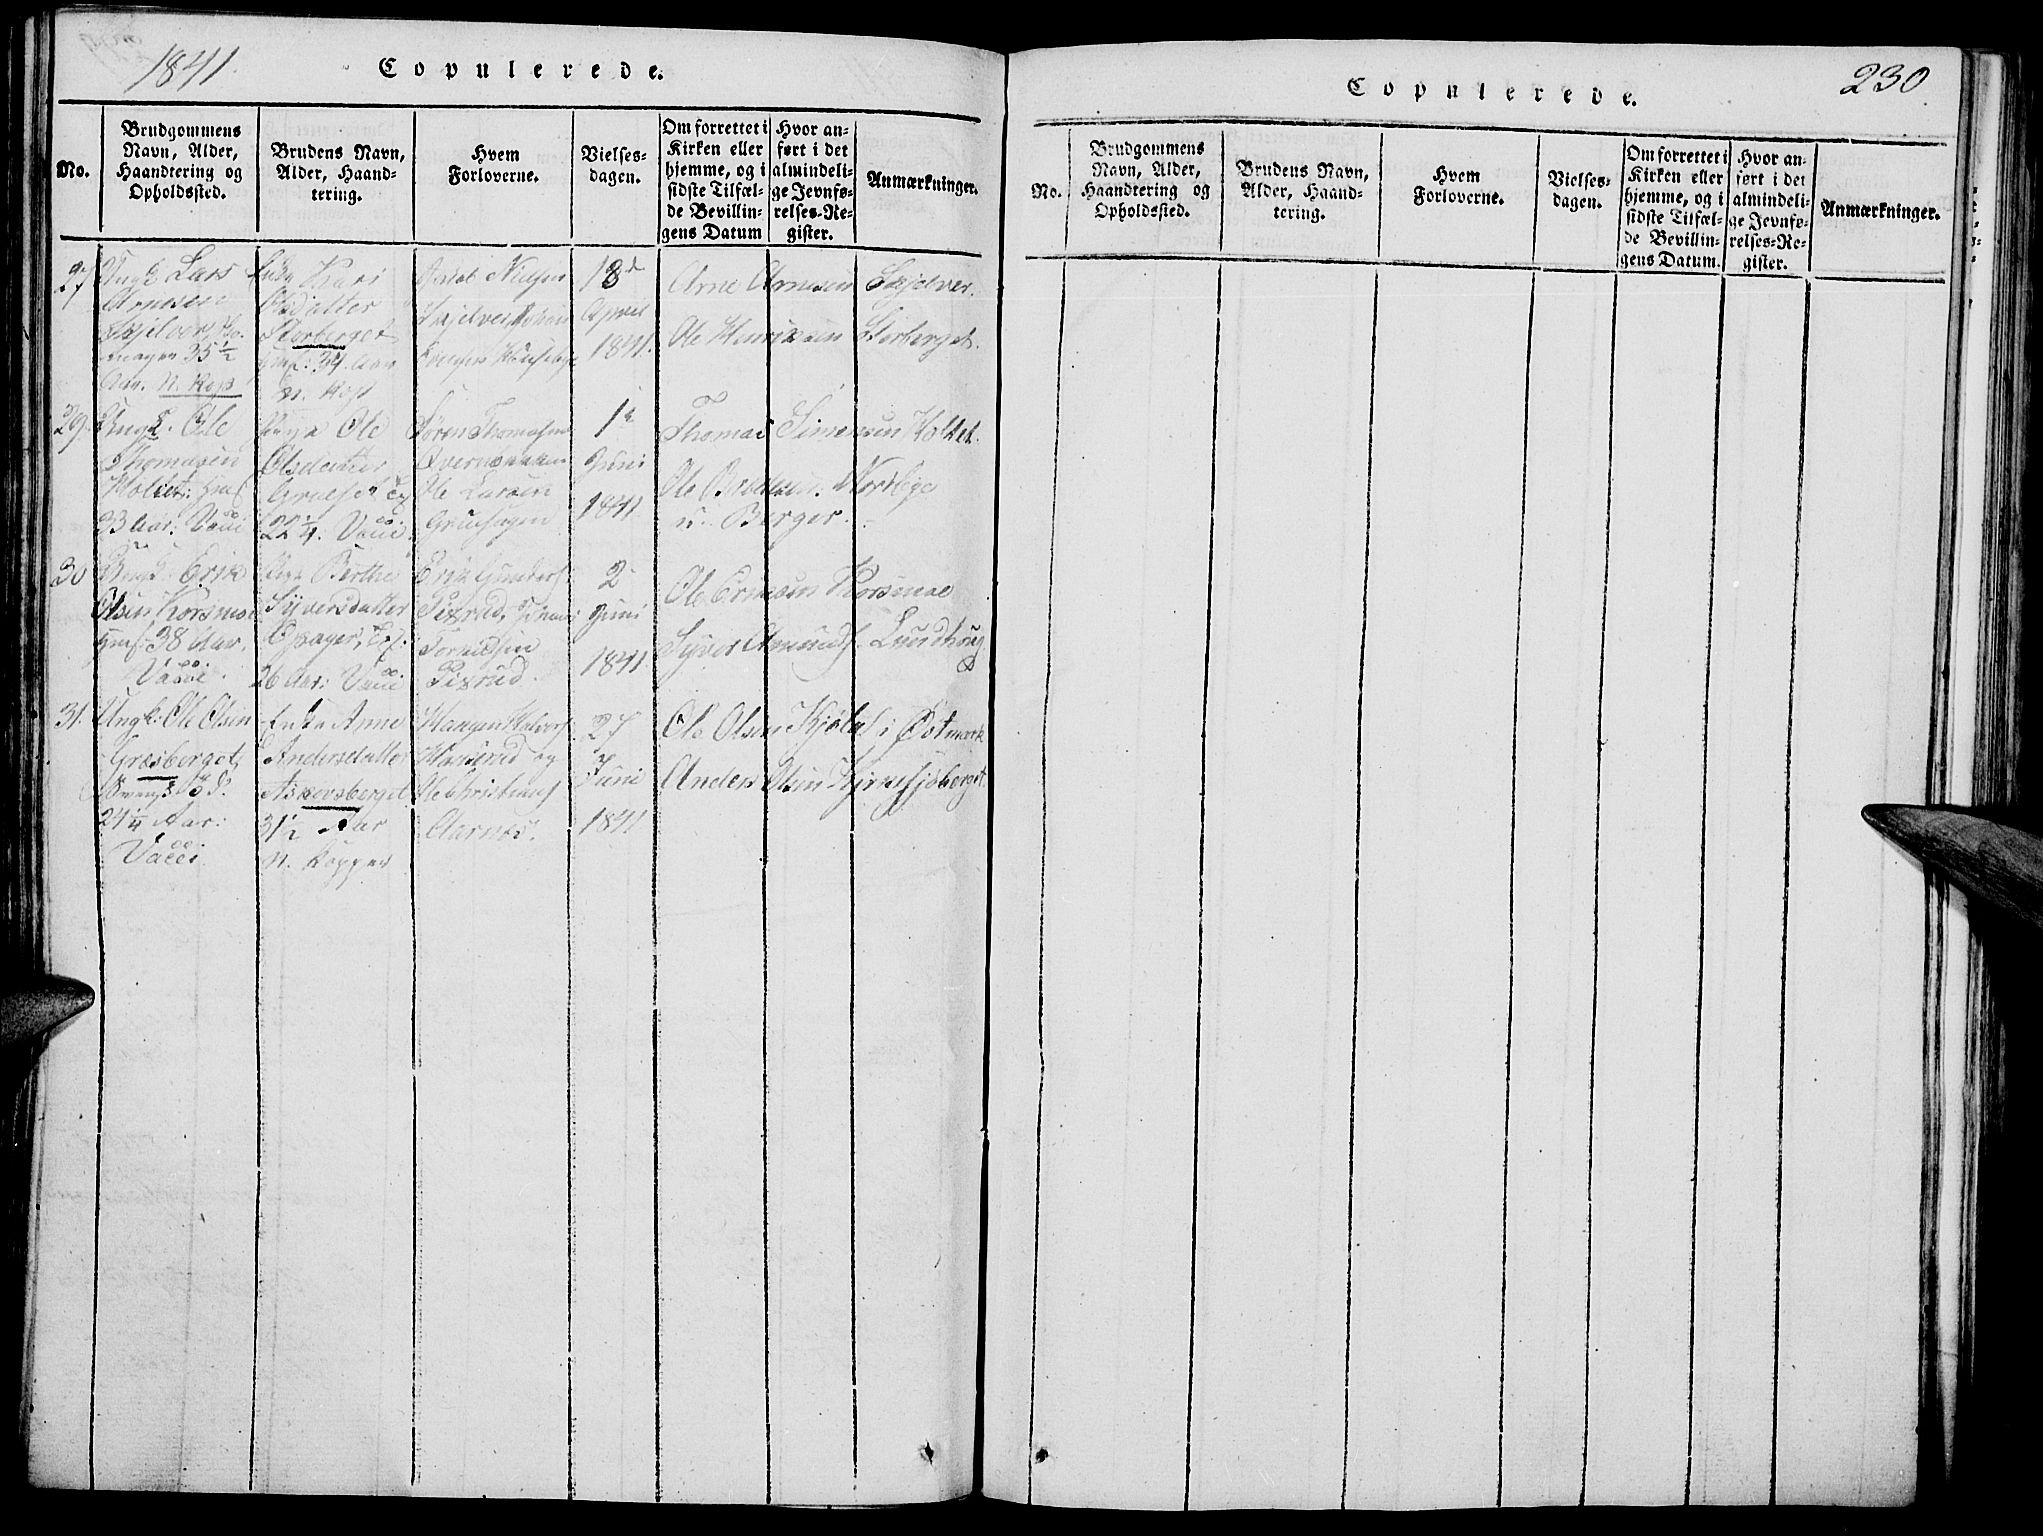 1841.
Copulerede.
No.
Brudgommens
Navn, Alder,
Haandtering og
Opholdssted.
Brudens Navn,
Alder, Haand-
tering.
Hvem
Forloverne.
Vielses-
dagen.
Om forrettet i
Kirken eller
hjemme, og i
sidste Tilfæl-
de Bevillin-
gens Datum
Hvor an-
ført i det
almindeli-
ge Jevnfø-
relses-Re-
gister.
Anmærkninger.
27
Ungk. Lars
Arnesen
35 1/2
Aar. N. Kop
Enke Kari
Olsdatter
Storberget
34 Aar
n. Kop
Jacob Nielsen
Skjelver
18d
April
1841.
Arne Arnesen Skjelver.
Ole Henriksen Storberget.
29.
Ungk. Ole
Thomasen
Holtet
33 Aar: Vacci
Pige Ole
Olsdatter
22 1/4. Vacci
Søren Thomasen
Overnæbben
Ole Larsen
Gruehagen
1ste
Juni
1841
Thomas Simensen Holtet.
Ole Brodesen Norbye
n. Berger.
30
Ungk. Erik
Olsen Korsmoe
38 Aar.
Vacci.
Pige Berthe
Syversdatter
Opager,
26 Aar: Vacci
Erik Gunders.
Pixrud,
Pixrud.
2
Juni
1841.
Ole Erniksen Korsmoe
Syver Amunds. Lundhoug
31.
Ungk: Ole Olsen
Græsberget,
24 1/4 Aar:
Vacci
Enke Anne
Andersdatter
Askovsberget
31 1/2 Aar
N. Kopper
Haagen Halvors.
Haverud og
Ole Christians.
Aarnæs.
27
Juni
1841
Ole Olsen Kjølas i Østmark
Anders Olsen Kirkesjøberget.
230.
Copulerede.
No.
Brudgommens
Navn, Alder,
Haandtering og
Opholdssted.
Brudens Navn,
Alder, Haand-
tering.
Hvem
Forloverne.
Vielses-
dagen.
Om forrettet i
Kirken eller
hjemme, og i
sidste Tilfæl-
de Bevillin-
gens Datum.
Hvor an-
ført i det
almindeli-
ge Jevnfø-
relses-Re-
gister.
Anmærkninger.